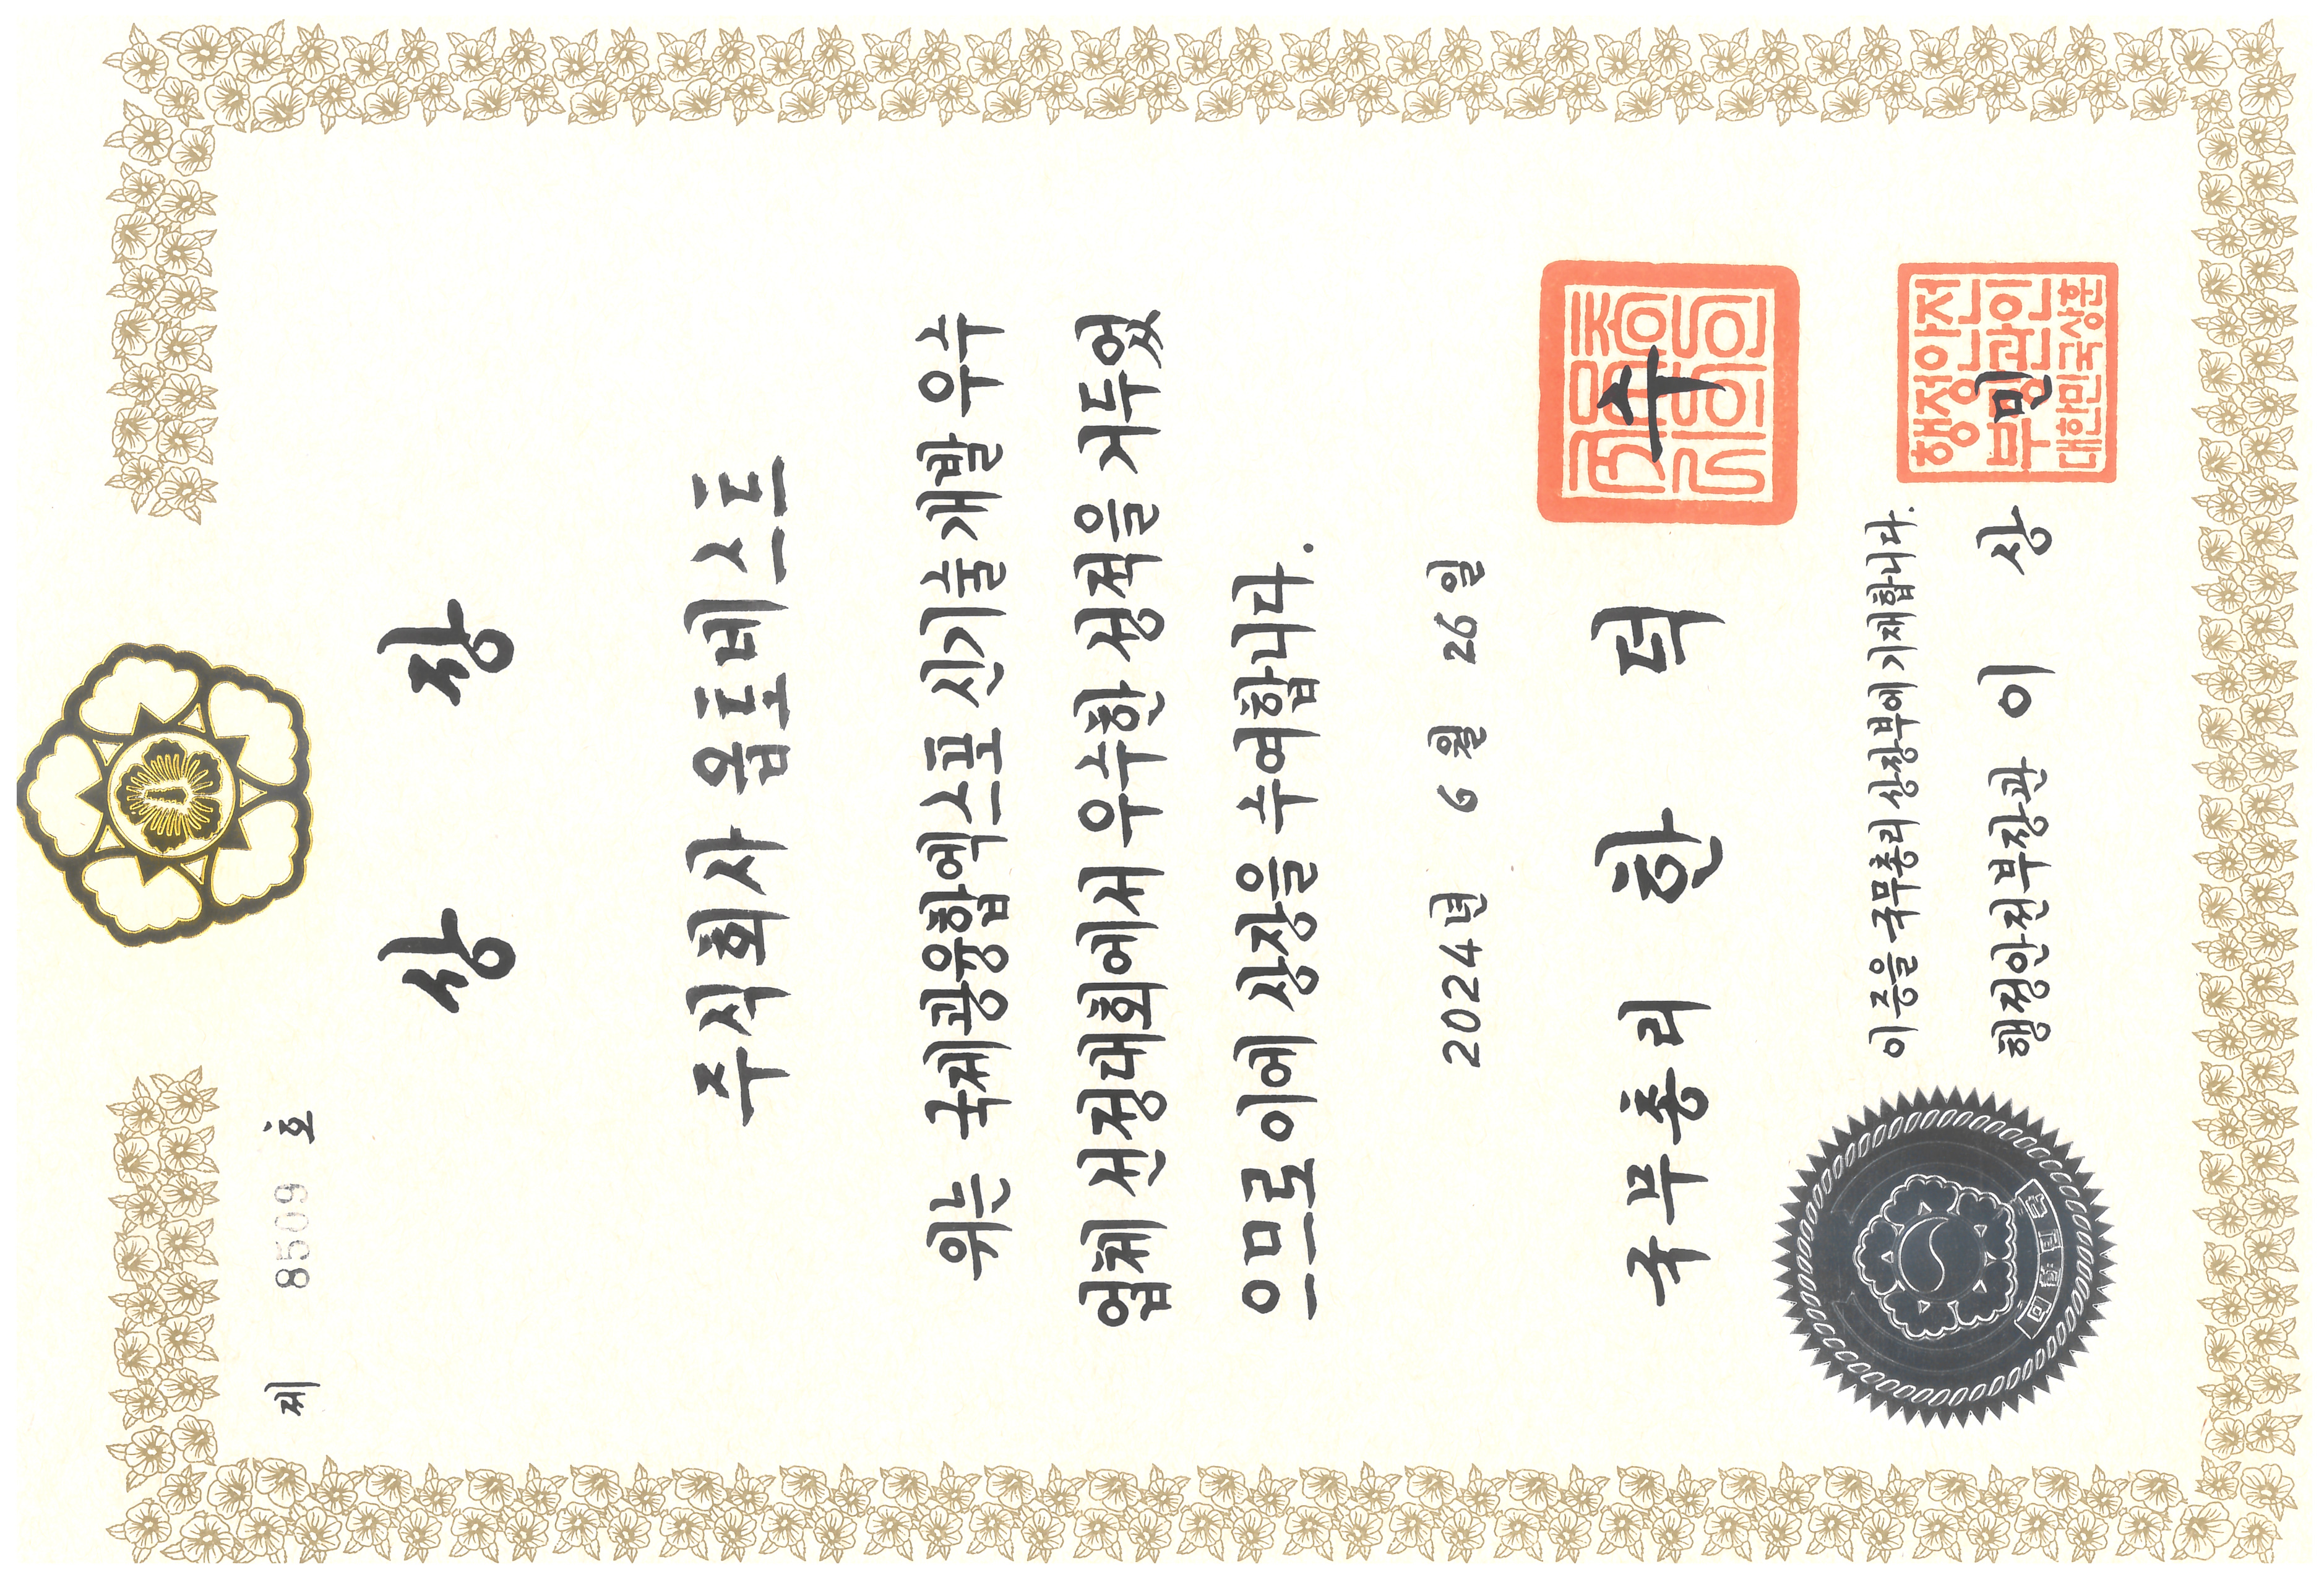 제 8509 호
상장
주식회사 옵토네스트
위는 국제광융합엑스포 신기술개발 우수
업체 선정대회에서 우수한 성적을 거두었
으므로 이에 상장을 수여합니다.
2024년 6월 26일
국무총리 한덕수
이 증을 국무총리 상장부에 기재합니다.
행정안전부장관 이상민
행정안전
부장관인
대한민국상훈
대한민국